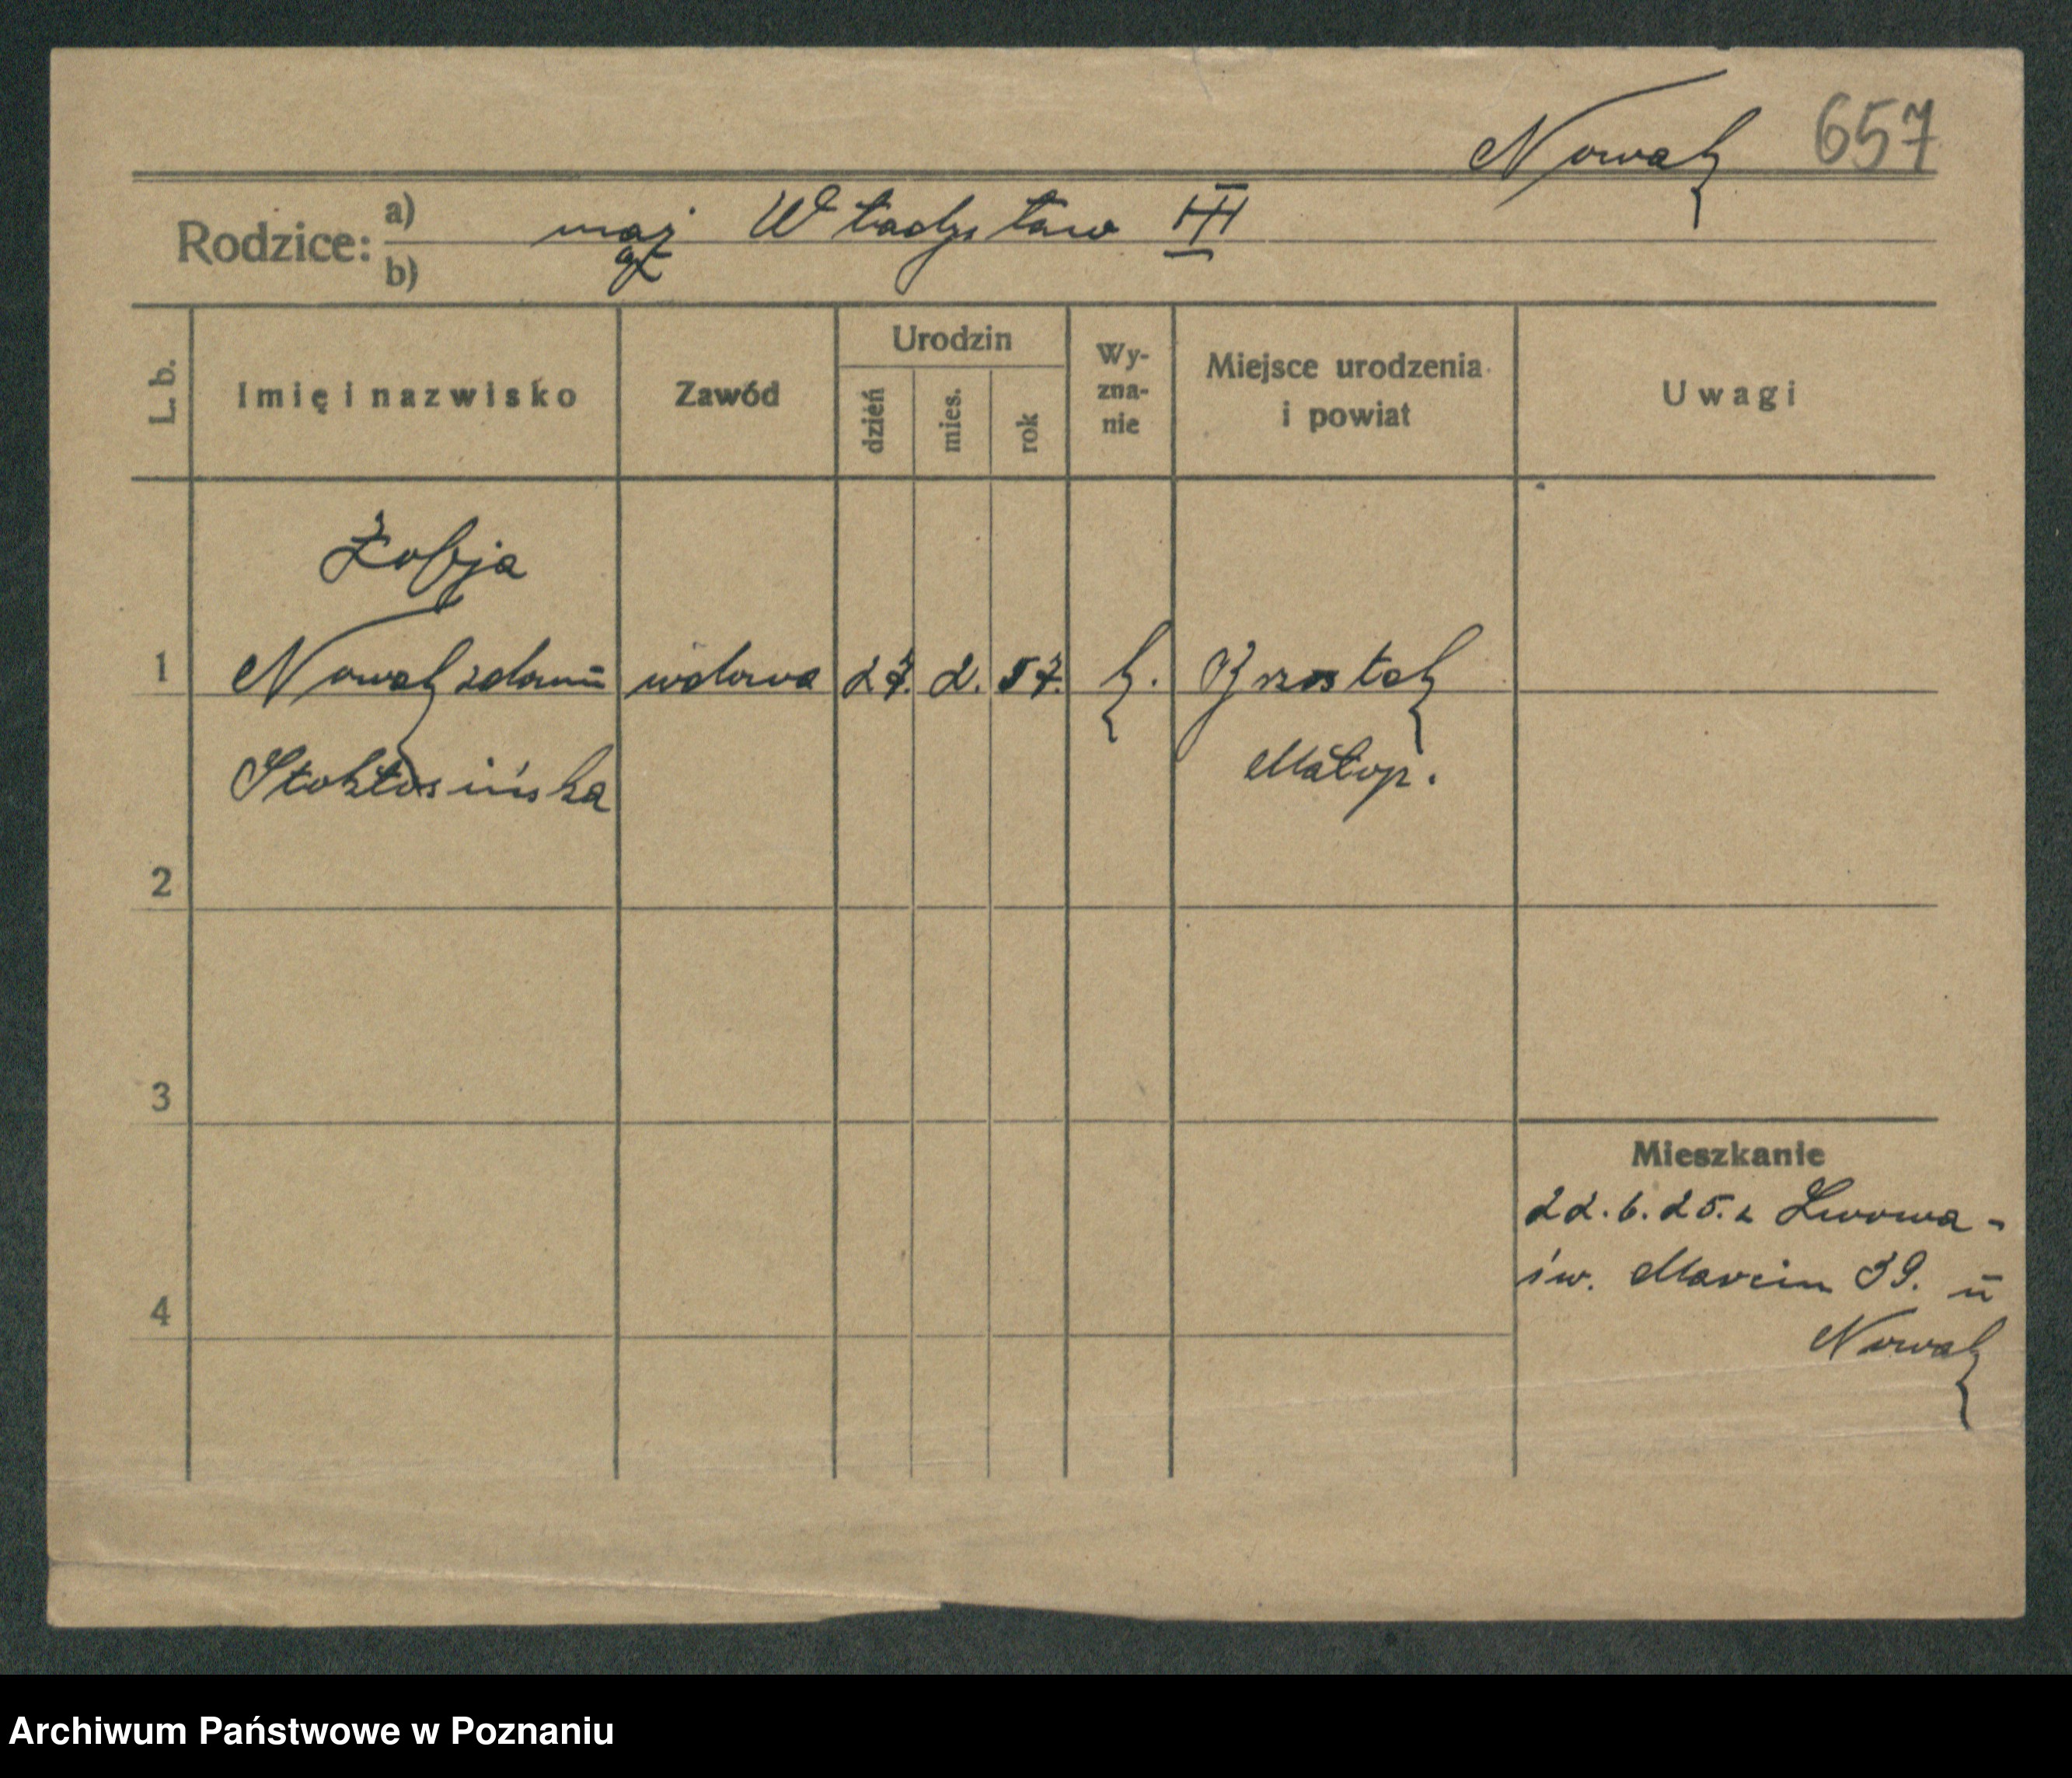 Nowak 657
Rodzice: a) mąż Władysław III
b)
L. b.
Imię i nazwisko
Zawód
Urodzin
dzień
mies.
rok
Wy-
zna-
nie
Miejsce urodzenia
i powiat
Uwagi
Zofja
1 Nowak z domu wdowa 27. 2. 57. k. Brzostek
Stokłosińska Małop.
2
3
4
Mieszkanie
22.6.25. z Lwowa -
św. Marcin 39. u
Nowak
Archiwum Państwowe w Poznaniu